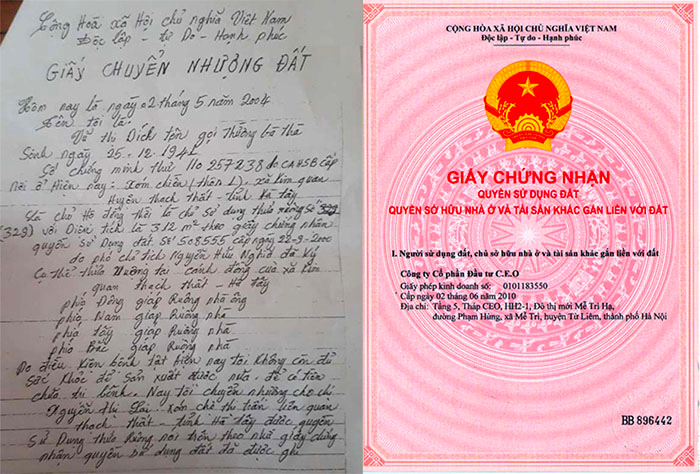 Cộng Hoà xã Hội chủ nghĩa Việt Nam
Độc lập - tự Do - Hạnh phúc
GIẤY CHUYỂN NHƯỢNG ĐẤT
Hôm nay là ngày 02 tháng 5 năm 2004
Tên tôi là:
Vũ Thị Dích tên gọi thường bà thà
Sinh ngày 25.12.194
Số chứng minh thư 110 257 238 do CAHSB cấp
Nơi ở Hiện nay: Xóm chiến (thôn 1). xã kim quan
Huyện thạch thất - tỉnh Hà tây
Là chủ Hộ đồng thời là chủ Sử dụng thửa ruộng Số
(329) với Diện tích là 312 m² theo giấy chứng nhận
quyền sử Dụng đất. Số 508555 cấp ngày 22-9-2000
do phó chủ tịch Nguyễn Hữu Nghĩa đã ký
Cụ thể thửa Ruộng tại cánh đồng của xã kim
quan thạch thất - Hà tây
phía Đông giáp Ruộng nhà ông
phía Nam giáp Ruộng nhà
phía tây giáp Ruộng nhà
phía Bắc giáp Ruộng nhà
Do điều kiện bệnh tật hiện nay tôi không còn đủ
Sức khỏe để sản xuất được nữa, để có tiền
chữa trị bệnh. Nay tôi chuyển nhượng cho chị
Nguyễn Thị xóm chế thị trấn liên quan
thạch thất - tỉnh Hà tây được quyền
Sử Dụng thửa Ruộng nói trên theo như giấy chứng
nhận quyền sử dụng đất đã được ghi
CỘNG HÒA XÃ HỘI CHỦ NGHĨA VIỆT NAM
Độc lập - Tự do - Hạnh phúc
VIỆT NAM
GIẤY CHỨNG NHẬN
QUYỀN SỬ DỤNG ĐẤT
QUYỀN SỞ HỮU NHÀ Ở VÀ TÀI SẢN KHÁC GẮN LIỀN VỚI ĐẤT
I. Người sử dụng đất, chủ sở hữu nhà ở và tài sản khác gắn liền với đất
Công ty Cổ phần Đầu tư C.E.O
Giấy phép kinh doanh số: 0101183550
Cấp ngày 02 tháng 06 năm 2010
Địa chỉ: Tầng 5, Tháp CEO, HH2-1, Đô thị mới Mễ Trì Hạ,
đường Phạm Hùng, xã Mễ Trì, huyện Từ Liêm, thành phố Hà Nội
BB 896442